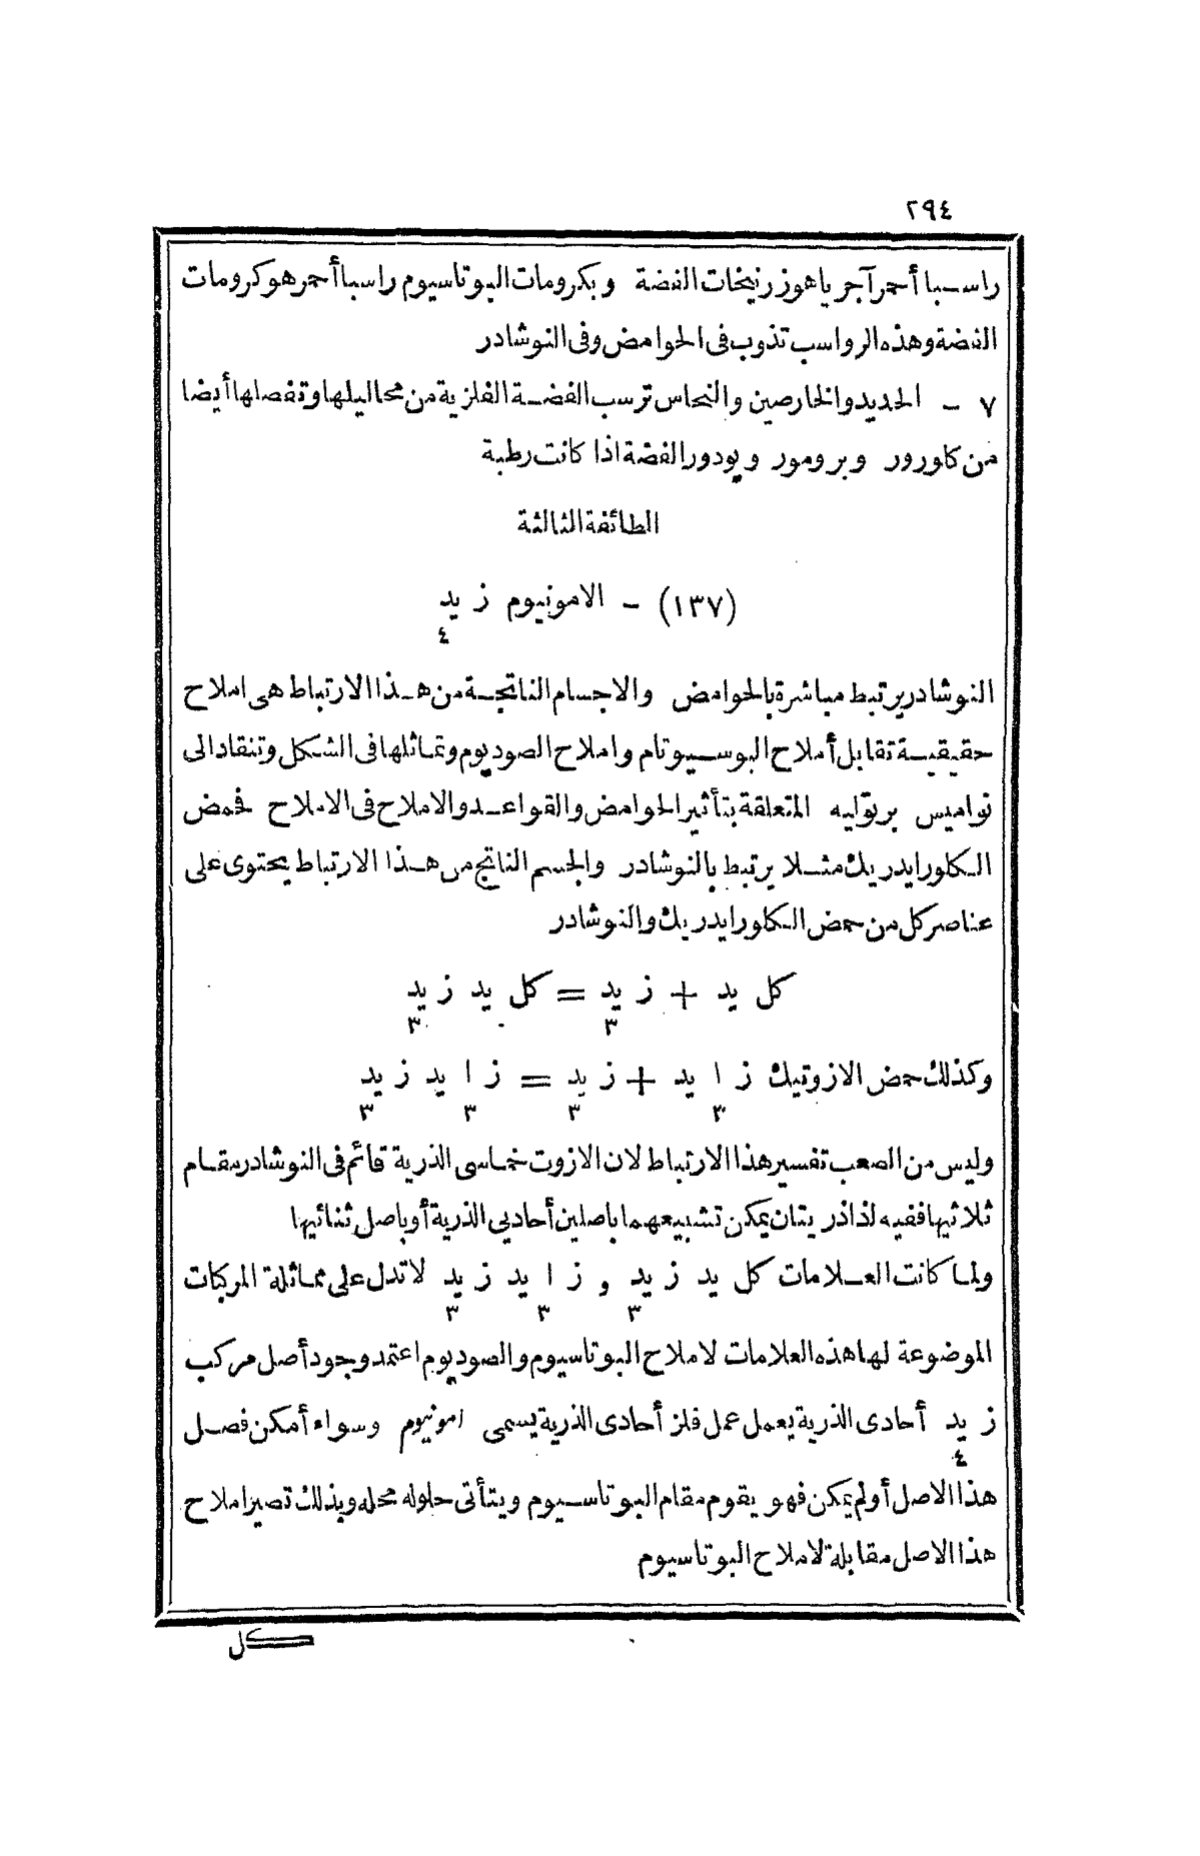 ٢٩٤
راسبا أحمر آجريا هو زرنيخات الفضة وبكرومات البوتاسيوم راسبا أحمر هو كرومات
الفضة وهذه الرواسب تذوب فى الحوامض وفى النوشادر
٧ - الحديد والخارصين والنحاس ترسب الفضة الفلزية من محاليلها وتفصلها أيضا
من كلورور وبرومور ويودور الفضة اذا كانت رطبة
الطائفة الثالثة
(١٣٧) - الامونيوم ز يد
٤
النوشادر يرتبط مباشرة بالحوامض والاجسام الناتجة من هذا الارتباط هى املاح
حقيقية تقابل أملاح البوسيوتام واملاح الصوديوم وتماثلها فى الشكل وتنقاد الى
نواميس برتوليه المتعلقة بتأثير الحوامض والقواعد والاملاح فى الاملاح فحمض
الكلورايدريك مثلا يرتبط بالنوشادر والجسم الناتج من هذا الارتباط يحتوى على
عناصر كل من حمض الكلورايدريك والنوشادر
كل يد + ز يد = كل يد ز يد
٣ ٣
وكذلك حمض الازوتيك ز ا يد + ز يد = ز ا يد ز يد
٣ ٣ ٣ ٣
وليس من الصعب تفسير هذا الارتباط لان الازوت خماسى الذرية قائم فى النوشادر مقام
ثلاثيها ففيه لذا ذريتان يمكن تشبيعهما باصلين أحاديي الذرية أو باصل ثنائيها
ولما كانت العلامات كل يد ز يد و ز ا يد ز يد لا تدل على مماثلة المركبات
٣ ٣ ٣
الموضوعة لها هذه العلامات لاملاح البوتاسيوم والصوديوم اعتمد وجود أصل مركب
ز يد أحادى الذرية يعمل عمل فلز أحادى الذرية يسمى امونيوم وسواء أمكن فصل
٤
هذا الاصل أو لم يمكن فهو يقوم مقام البوتاسيوم ويتأتى حلوله محله وبذلك تصير املاح
هذا الاصل مقابلة لاملاح البوتاسيوم
كل